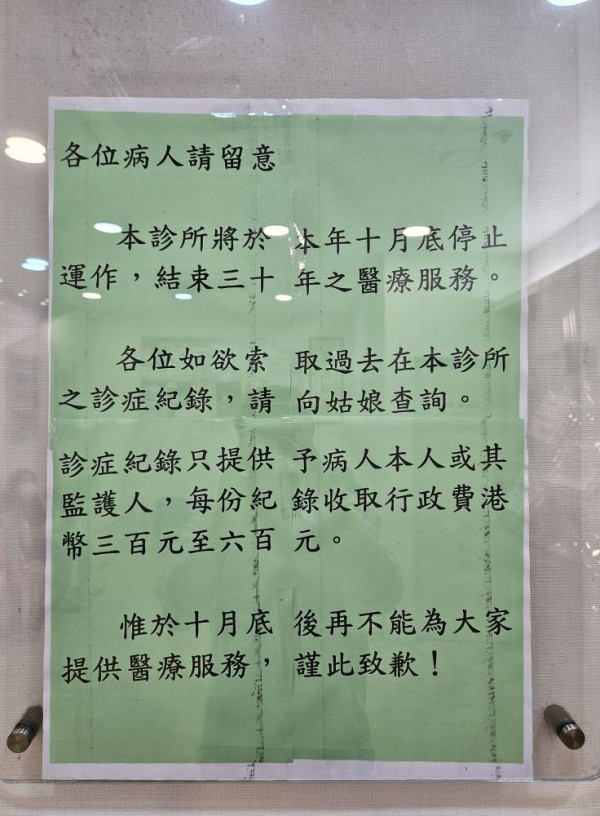 各位病人請留意
本診所將於本年十月底停止
運作，結束三十年之醫療服務。
各位如欲索取過去在本診所
之診症紀錄，請向姑娘查詢。
診症紀錄只提供予病人本人或其
監護人，每份紀錄收取行政費港
幣三百元至六百元。
惟於十月底後再不能為大家
提供醫療服務，謹此致歉！